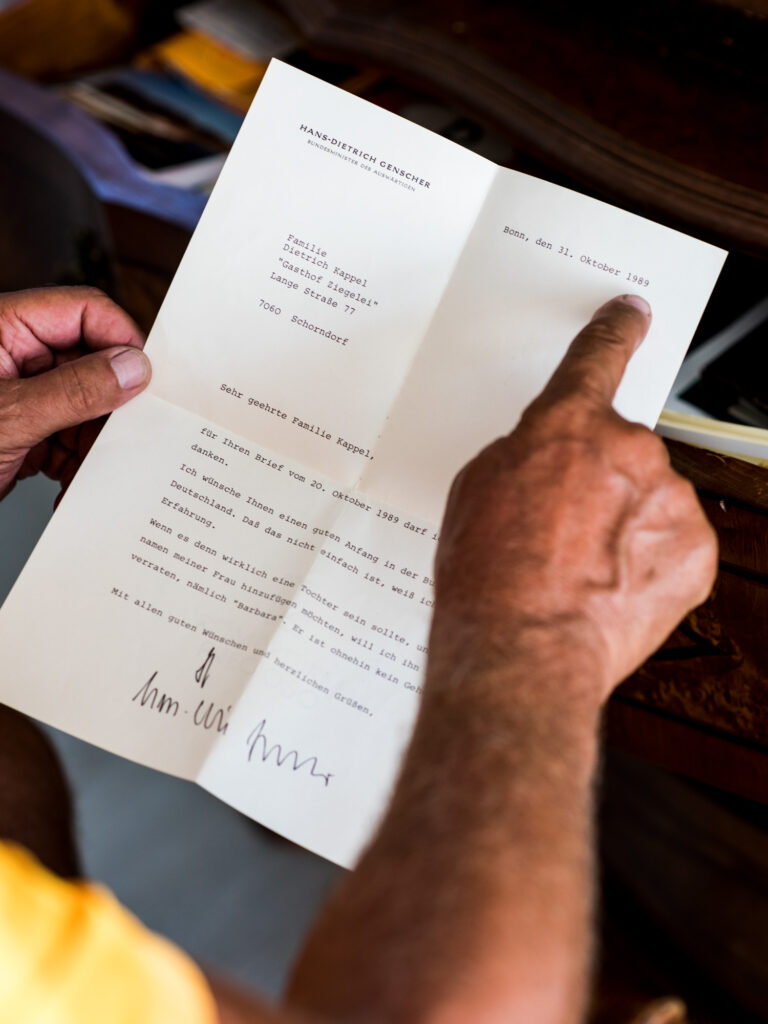 HANS-DIETRICH GENSCHER
BUNDESMINISTER DES AUSWÄRTIGEN
Bonn, den 31. Oktober 1989
Familie
Dietrich Kappel
"Gasthof Ziegelei"
Lange Straße 77
7060 Schorndorf
Sehr geehrte Familie Kappel,
für Ihren Brief vom 20. Oktober 1989 darf i
danken.
Ich wünsche Ihnen einen guten Anfang in der Bu
Deutschland. Daß das nicht einfach ist, weiß ic
Erfahrung.
Wenn es denn wirklich eine Tochter sein sollte, un
namen meiner Frau hinzufügen möchten, will ich ihn
verraten, nämlich "Barbara". Er ist ohnehin kein Geh
Mit allen guten Wünschen und herzlichen Grüßen,